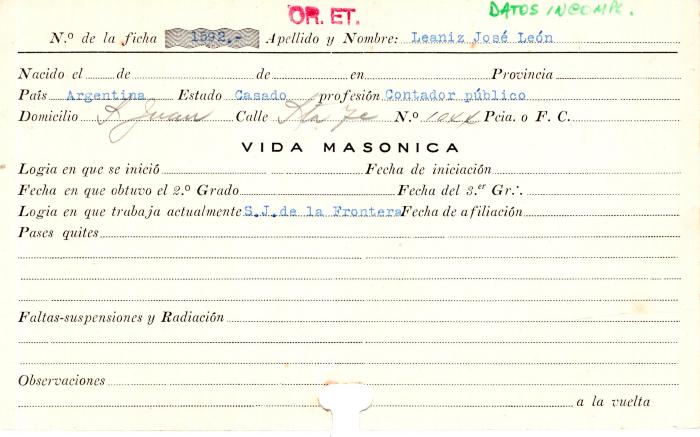 OR. ET. DATOS INCOMPL.
N.º de la ficha 1592.- Apellido y Nombre: Leaniz José León
Nacido el de de en Provincia
País Argentina Estado Casado profesión Contador público
Domicilio S. Juan Calle Sta Fe N.º Pcia. o F. C.
VIDA MASONICA
Logia en que se inició Fecha de iniciación
Fecha en que obtuvo el 2.º Grado Fecha del 3.er Gr∴.
Logia en que trabaja actualmente S.J.de la Frontera Fecha de afiliación
Pases quites
Faltas-suspensiones y Radiación
Observaciones
a la vuelta